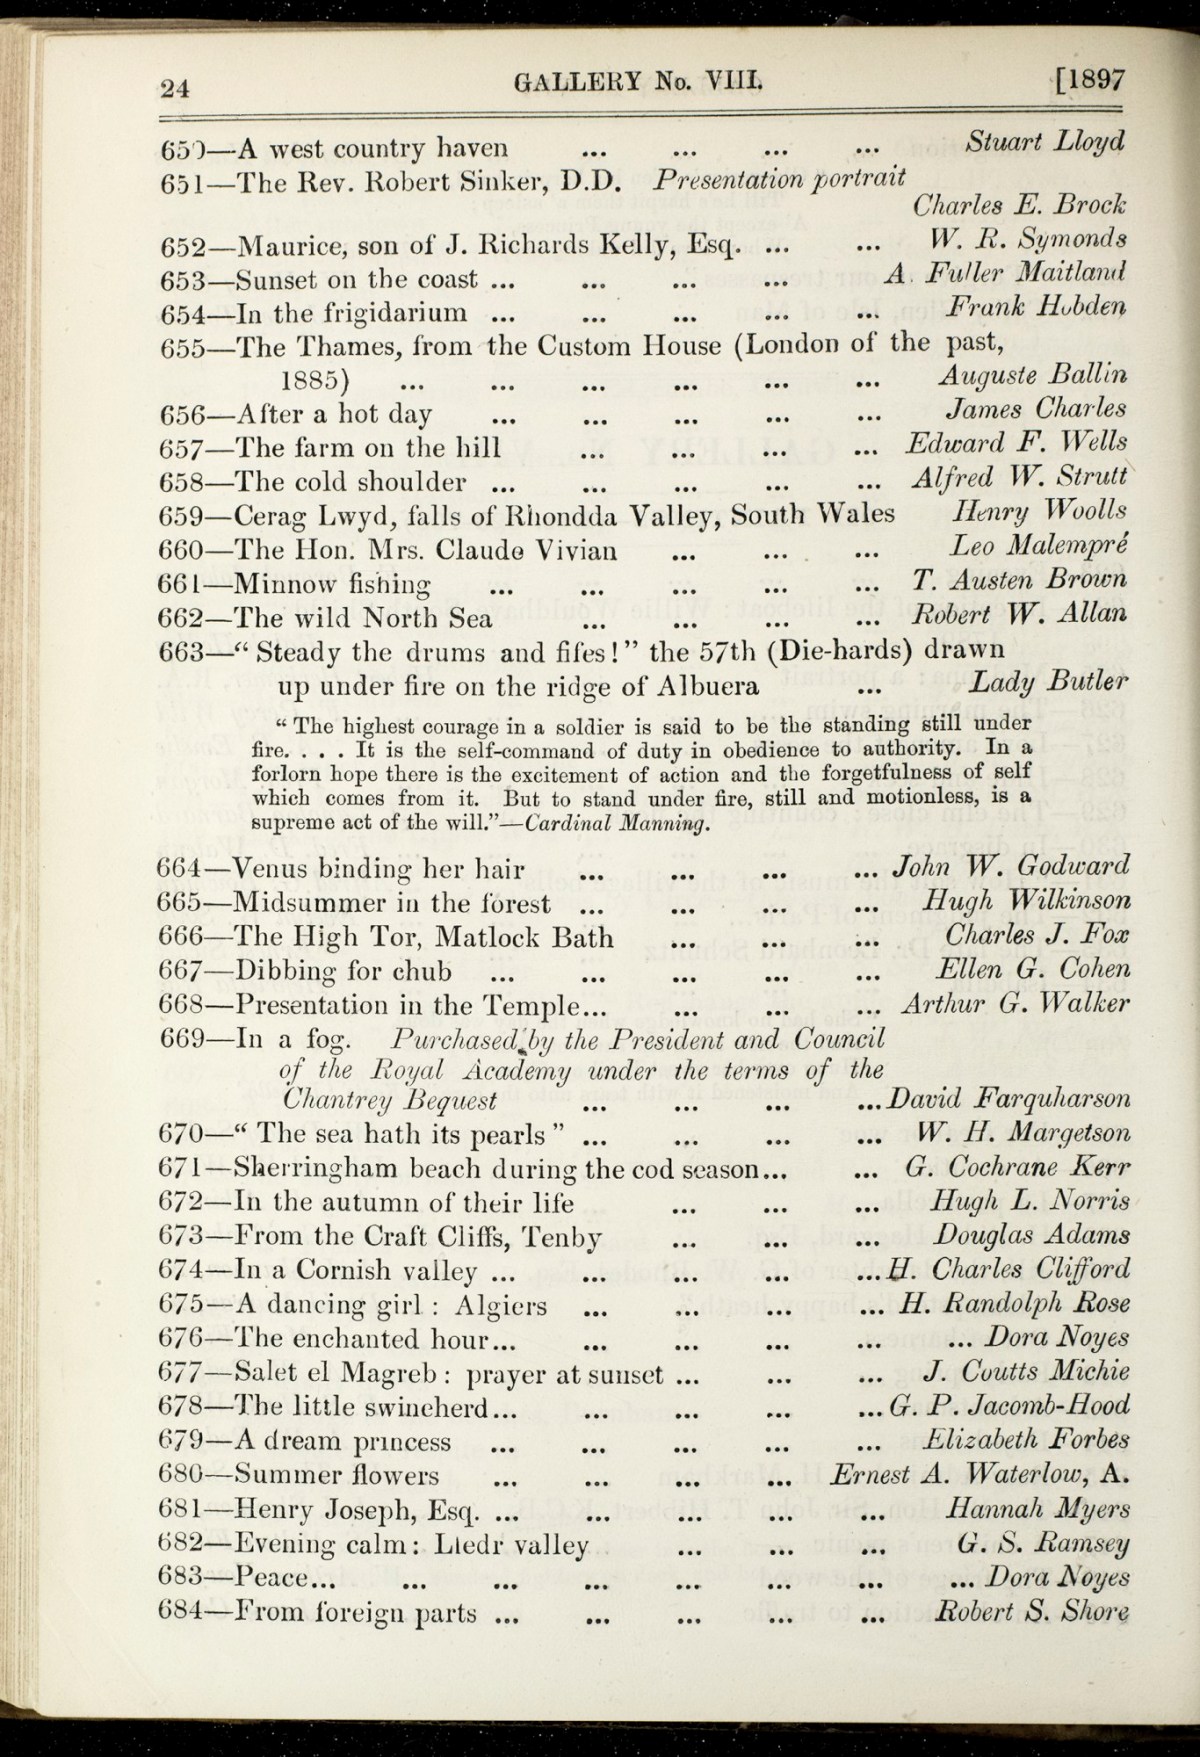 24 GALLERY No. VIII. [1897
650—A west country haven ... ... ... ... Stuart Lloyd
651—The Rev. Robert Sinker, D.D. Presentation portrait
Charles E. Brock
652—Maurice, son of J. Richards Kelly, Esq. ... ... W. R. Symonds
653—Sunset on the coast ... ... ... ... A. Fuller Maitland
654—In the frigidarium ... ... ... ... ... Frank Hobden
655—The Thames, from the Custom House (London of the past,
1885) ... ... ... ... ... ... Auguste Ballin
656—After a hot day ... ... ... ... ... James Charles
657—The farm on the hill ... ... ... ... Edward F. Wells
658—The cold shoulder ... ... ... ... ... Alfred W. Strutt
659—Cerag Lwyd, falls of Rhondda Valley, South Wales Henry Woolls
660—The Hon. Mrs. Claude Vivian ... ... ... Leo Malempré
661—Minnow fishing ... ... ... ... ... T. Austen Brown
662—The wild North Sea ... ... ... ... Robert W. Allan
663—“Steady the drums and fifes!” the 57th (Die-hards) drawn
up under fire on the ridge of Albuera ... Lady Butler
“The highest courage in a soldier is said to be the standing still under
fire. . . . It is the self-command of duty in obedience to authority. In a
forlorn hope there is the excitement of action and the forgetfulness of self
which comes from it. But to stand under fire, still and motionless, is a
supreme act of the will.”—Cardinal Manning.
664—Venus binding her hair ... ... ... ... John W. Godward
665—Midsummer in the forest ... ... ... ... Hugh Wilkinson
666—The High Tor, Matlock Bath ... ... ... Charles J. Fox
667—Dibbing for chub ... ... ... ... ... Ellen G. Cohen
668—Presentation in the Temple... ... ... ... Arthur G. Walker
669—In a fog. Purchased by the President and Council
of the Royal Academy under the terms of the
Chantrey Bequest ... ... ... ... David Farquharson
670—“The sea hath its pearls” ... ... ... ... W. H. Margetson
671—Sherringham beach during the cod season... ... G. Cochrane Kerr
672—In the autumn of their life ... ... ... Hugh L. Norris
673—From the Craft Cliffs, Tenby ... ... ... Douglas Adams
674—In a Cornish valley ... ... ... ... ... H. Charles Clifford
675—A dancing girl : Algiers ... ... ... ... H. Randolph Rose
676—The enchanted hour... ... ... ... ... ... Dora Noyes
677—Salet el Magreb : prayer at sunset ... ... ... J. Coutts Michie
678—The little swineherd... ... ... ... ... G. P. Jacomb-Hood
679—A dream princess ... ... ... ... ... Elizabeth Forbes
680—Summer flowers ... ... ... ... Ernest A. Waterlow, A.
681—Henry Joseph, Esq. ... ... ... ... ... Hannah Myers
682—Evening calm : Lledr valley ... ... ... G. S. Ramsey
683—Peace... ... ... ... ... ... ... ... Dora Noyes
684—From foreign parts ... ... ... ... ... Robert S. Shore